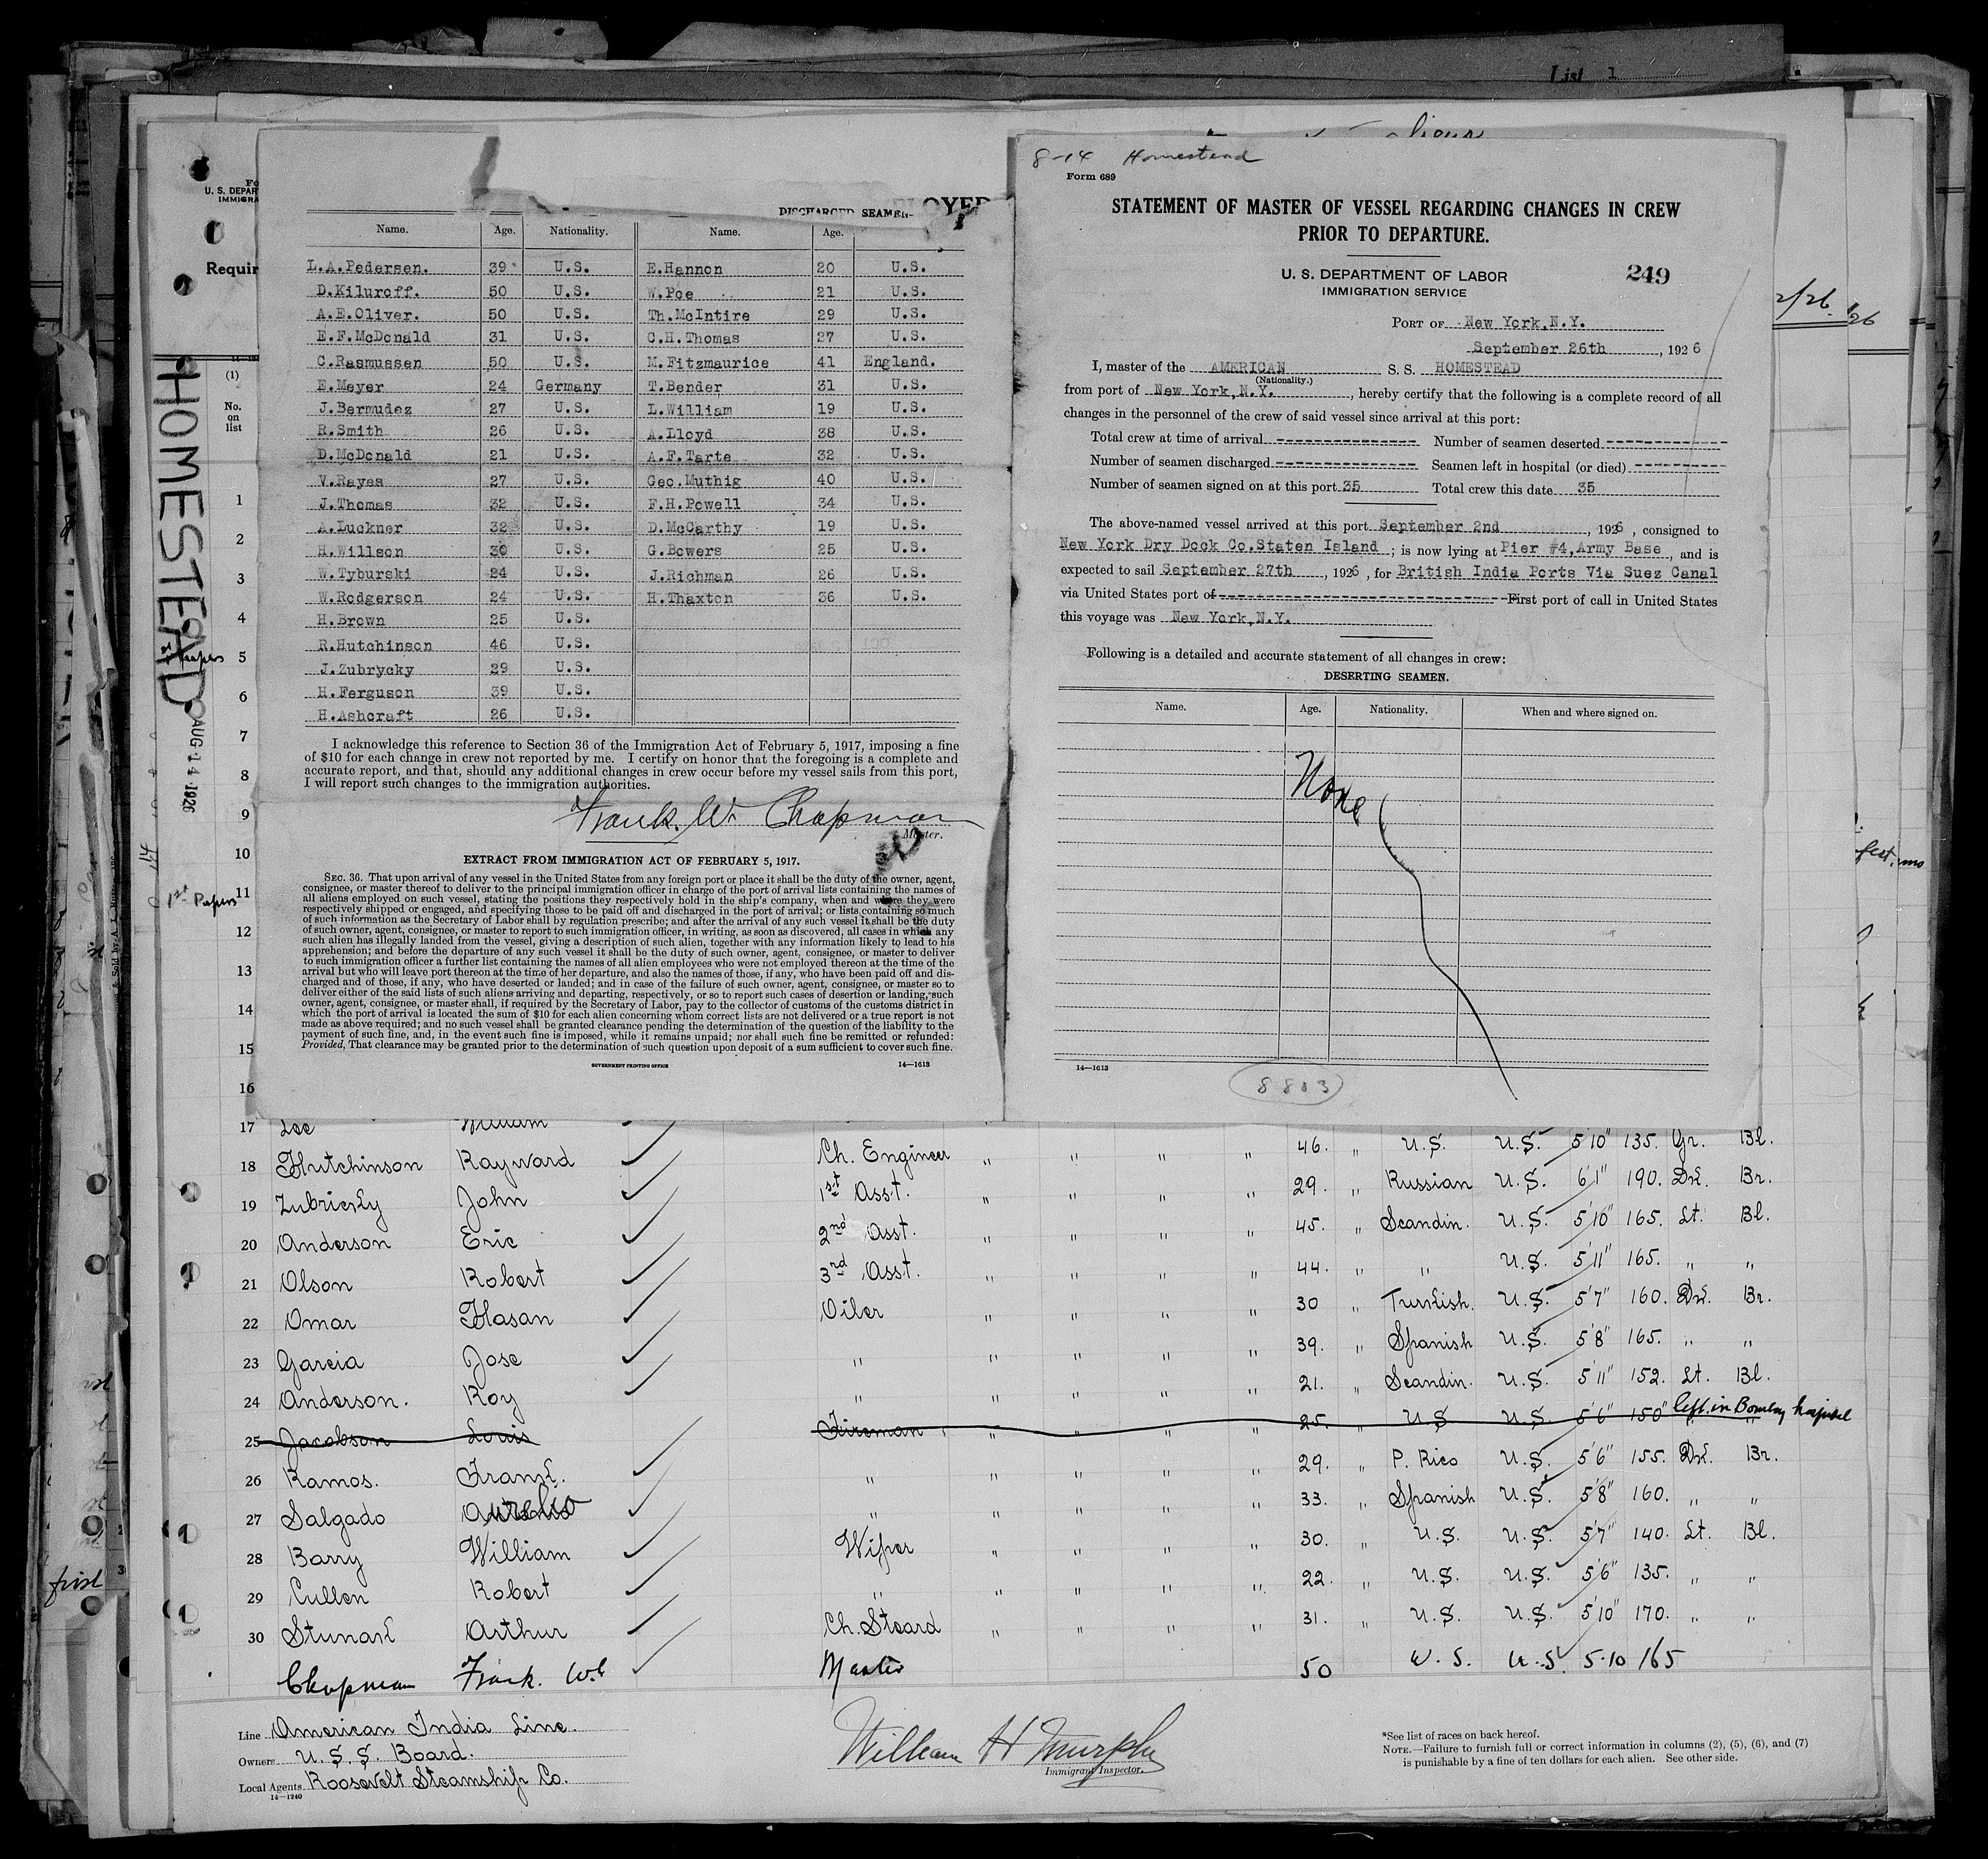 List 1
8-14 Homestead
Form 689
STATEMENT OF MASTER OF VESSEL REGARDING CHANGES IN CREW
PRIOR TO DEPARTURE.
U. S. DEPARTMENT OF LABOR
IMMIGRATION SERVICE
249
PORT OF New York, N.Y.
September 26th, 1926
I, master of the AMERICAN S. S. HOMESTEAD
(Nationality.)
from port of New York, N.Y., hereby certify that the following is a complete record of all
changes in the personnel of the crew of said vessel since arrival at this port:
Total crew at time of arrival Number of seamen deserted
Number of seamen discharged Seamen left in hospital (or died)
Number of seamen signed on at this port 35 Total crew this date 35
The above-named vessel arrived at this port September 2nd, 1926, consigned to
New York Dry Dock Co. Staten Island; is now lying at Pier #4, Army Base, and is
expected to sail September 27th, 1926, for British India Ports Via Suez Canal
via United States port of First port of call in United States
this voyage was New York, N.Y.
Following is a detailed and accurate statement of all changes in crew:
DESERTING SEAMEN.
Name. Age. Nationality. When and where signed on.
None
14—1613
8803
DISCHARGED SEAMEN
Name. Age. Nationality. Name. Age.
L.A.Pedersen. 39 U.S. E.Hannon 20 U.S.
D.Kiluroff. 50 U.S. W.Poe 21 U.S.
A.E.Oliver. 50 U.S. Th.McIntire 29 U.S.
E.F.McDonald 31 U.S. C.H.Thomas 27 U.S.
C.Rasmussen 50 U.S. M.Fitzmaurice 41 England.
E.Meyer 24 Germany T.Bender 31 U.S.
J.Bermudez 27 U.S. L.William 19 U.S.
R.Smith 26 U.S. A.Lloyd 38 U.S.
D.McDonald 21 U.S. A.F.Tarte 32 U.S.
V.Rayes 27 U.S. Geo.Muthig 40 U.S.
J.Thomas 32 U.S. F.H.Powell 34 U.S.
A.Luckner 32 U.S. D.McCarthy 19 U.S.
H.Willson 30 U.S. G.Bowers 25 U.S.
W.Tyburski 24 U.S. J.Richman 26 U.S.
W.Rodgerson 24 U.S. H.Thaxton 36 U.S.
H.Brown 25 U.S.
R.Hutchinson 46 U.S.
J.Zubrycky 29 U.S.
H.Ferguson 39 U.S.
H.Ashcraft 26 U.S.
I acknowledge this reference to Section 36 of the Immigration Act of February 5, 1917, imposing a fine
of $10 for each change in crew not reported by me. I certify on honor that the foregoing is a complete and
accurate report, and that, should any additional changes in crew occur before my vessel sails from this port,
I will report such changes to the immigration authorities.
Frank. W. Chapman
Master.
EXTRACT FROM IMMIGRATION ACT OF FEBRUARY 5, 1917.
SEC. 36. That upon arrival of any vessel in the United States from any foreign port or place it shall be the duty of the owner, agent,
consignee, or master thereof to deliver to the principal immigration officer in charge of the port of arrival lists containing the names of
all aliens employed on such vessel, stating the positions they respectively hold in the ship's company, when and where they were
respectively shipped or engaged, and specifying those to be paid off and discharged in the port of arrival; or lists containing so much
of such information as the Secretary of Labor shall by regulation prescribe; and after the arrival of any such vessel it shall be the duty
of such owner, agent, consignee, or master to report to such immigration officer, in writing, as soon as discovered, all cases in which any
such alien has illegally landed from the vessel, giving a description of such alien, together with any information likely to lead to his
apprehension; and before the departure of any such vessel it shall be the duty of such owner, agent, consignee, or master to deliver
to such immigration officer a further list containing the names of all alien employees who were not employed thereon at the time of the
arrival but who will leave port thereon at the time of her departure, and also the names of those, if any, who have been paid off and dis-
charged and of those, if any, who have deserted or landed; and in case of the failure of such owner, agent, consignee, or master so to
deliver either of the said lists of such aliens arriving and departing, respectively, or so to report such cases of desertion or landing, such
owner, agent, consignee, or master shall, if required by the Secretary of Labor, pay to the collector of customs of the customs district in
which the port of arrival is located the sum of $10 for each alien concerning whom correct lists are not delivered or a true report is not
made as above required; and no such vessel shall be granted clearance pending the determination of the question of the liability to the
payment of such fine, and, in the event such fine is imposed, while it remains unpaid; nor shall such fine be remitted or refunded:
Provided, That clearance may be granted prior to the determination of such question upon deposit of a sum sufficient to cover such fine.
GOVERNMENT PRINTING OFFICE 14—1613
U. S. DEPAR
IMMIGRA
Requir
HOMESTEAD
AUG 14 1926
(1)
No.
on
list
1
2
3
4
5
6
7
8
9
10
1st Papers 11
12
13
14
15
16
17 Lee William
18 Hutchinson Rayward Ch. Engineer " " " " 46. " U.S. U.S. 5'10" 135. Gr. Bl.
19 Zubricky John 1st Asst. " " " " 29. " Russian U.S. 6'1" 190. Dk. Br.
20 Anderson Eric 2nd Asst. " " " " 45. " Scandin. U.S. 5'10" 165. Lt. Bl.
21 Olson Robert 3rd Asst. " " " " 44. " " U.S. 5'11" 165. " "
22 Omar Hasan Oiler " " " " 30 " Turkish. U.S. 5'7" 160. Dk. Br.
23 Garcia Jose " " " " " 39. " Spanish U.S. 5'8" 165. " "
24 Anderson. Roy " " " " " 21. " Scandin. U.S. 5'11" 152. Lt. Bl.
25 Jacobson Louis Fireman " " " " 25. " U.S. U.S. 5'6" 150" left in Bombay hospital
26 Ramos. Frank. " " " " " 29. " P. Rico U.S. 5'6" 155. Dk. Br.
27 Salgado Aurelio " " " " " 33. " Spanish U.S. 5'8" 160. " "
28 Barry William Wiper " " " " 30. " U.S. U.S. 5'7" 140. Lt. Bl.
29 Cullen Robert " " " " " 22. " U.S. U.S. 5'6" 135. " "
30 Stunark Arthur Ch. Steard " " " " 31. " U.S. U.S. 5'10" 170. " "
Chapman Frank. W. Master 50 U.S. U.S. 5-10 165
Line American India Line.
Owners U.S.S. Board.
Local Agents Roosevelt Steamship Co.
14—1240
William H Murphy
Immigrant Inspector.
*See list of races on back hereof.
NOTE.—Failure to furnish full or correct information in columns (2), (5), (6), and (7)
is punishable by a fine of ten dollars for each alien. See other side.
first